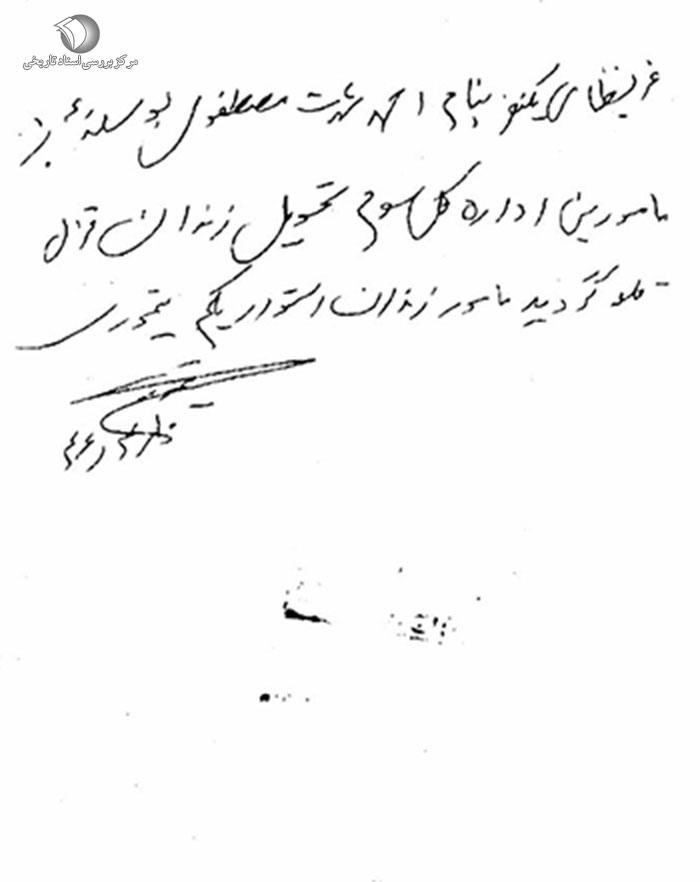 مرکز بررسی اسناد تاریخی
غیرنظامی یکنفر بنام احمد شهرت مصطفوی بوسیله
مامورین اداره کل سوم تحویل زندان قزل
قلعه گردید مامور زندان استوار یکم تیموری